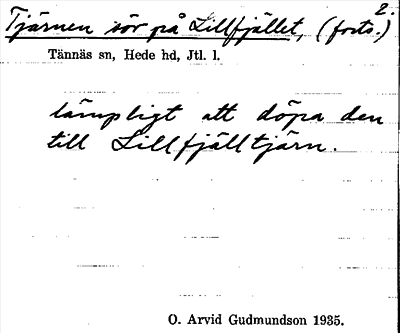 2.
Tjärnen sör på Lillfjället, (forts.)
Tännäs sn, Hede hd, Jtl. l.
lämpligt att döpa den
till Lillfjälltjärn.
O. Arvid Gudmundson 1935.